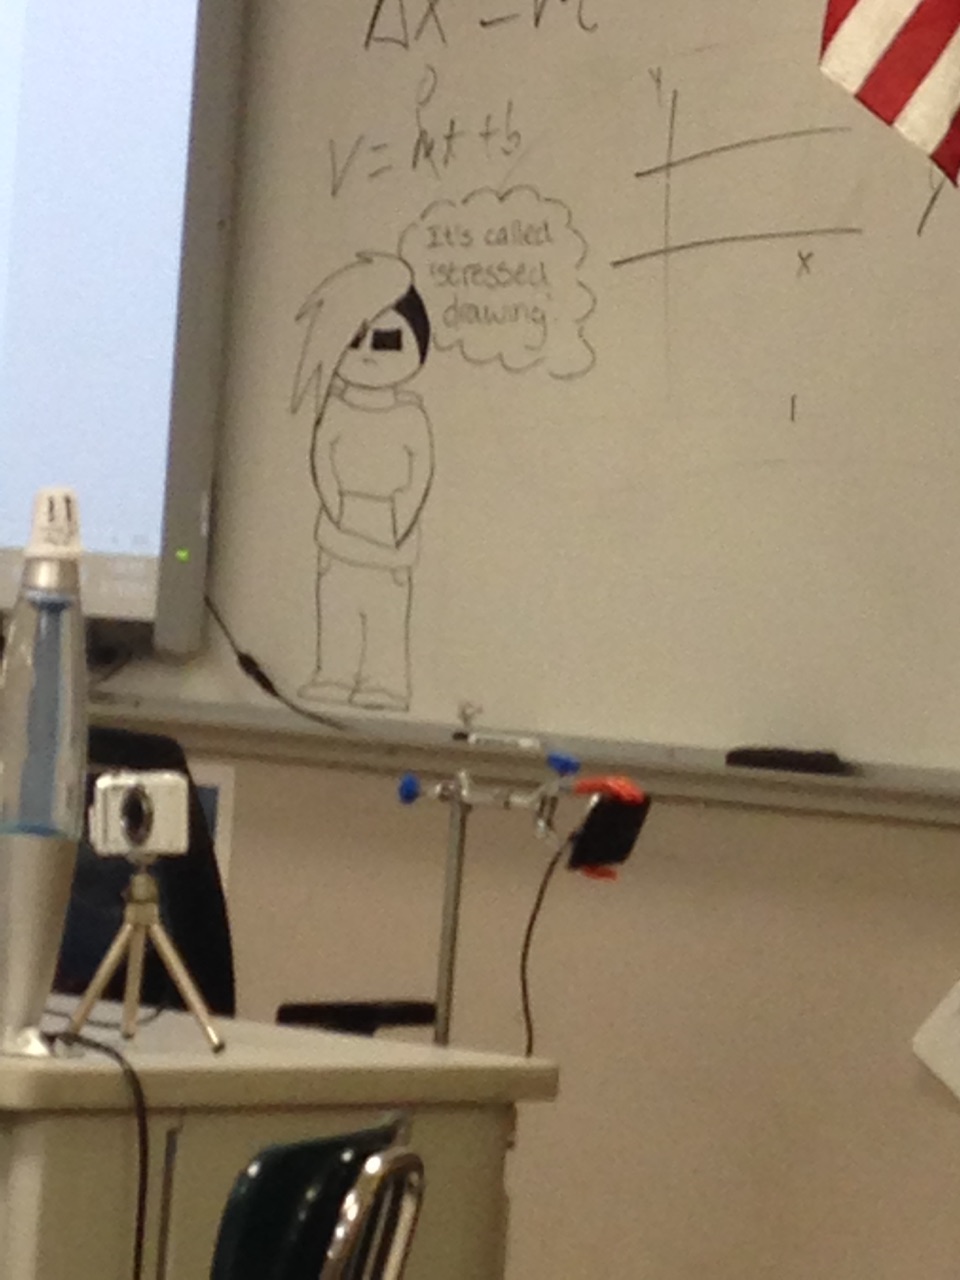 ΔX = M
0
V = mt + b
It's called
'stressed
drawing'
Y
X
Y